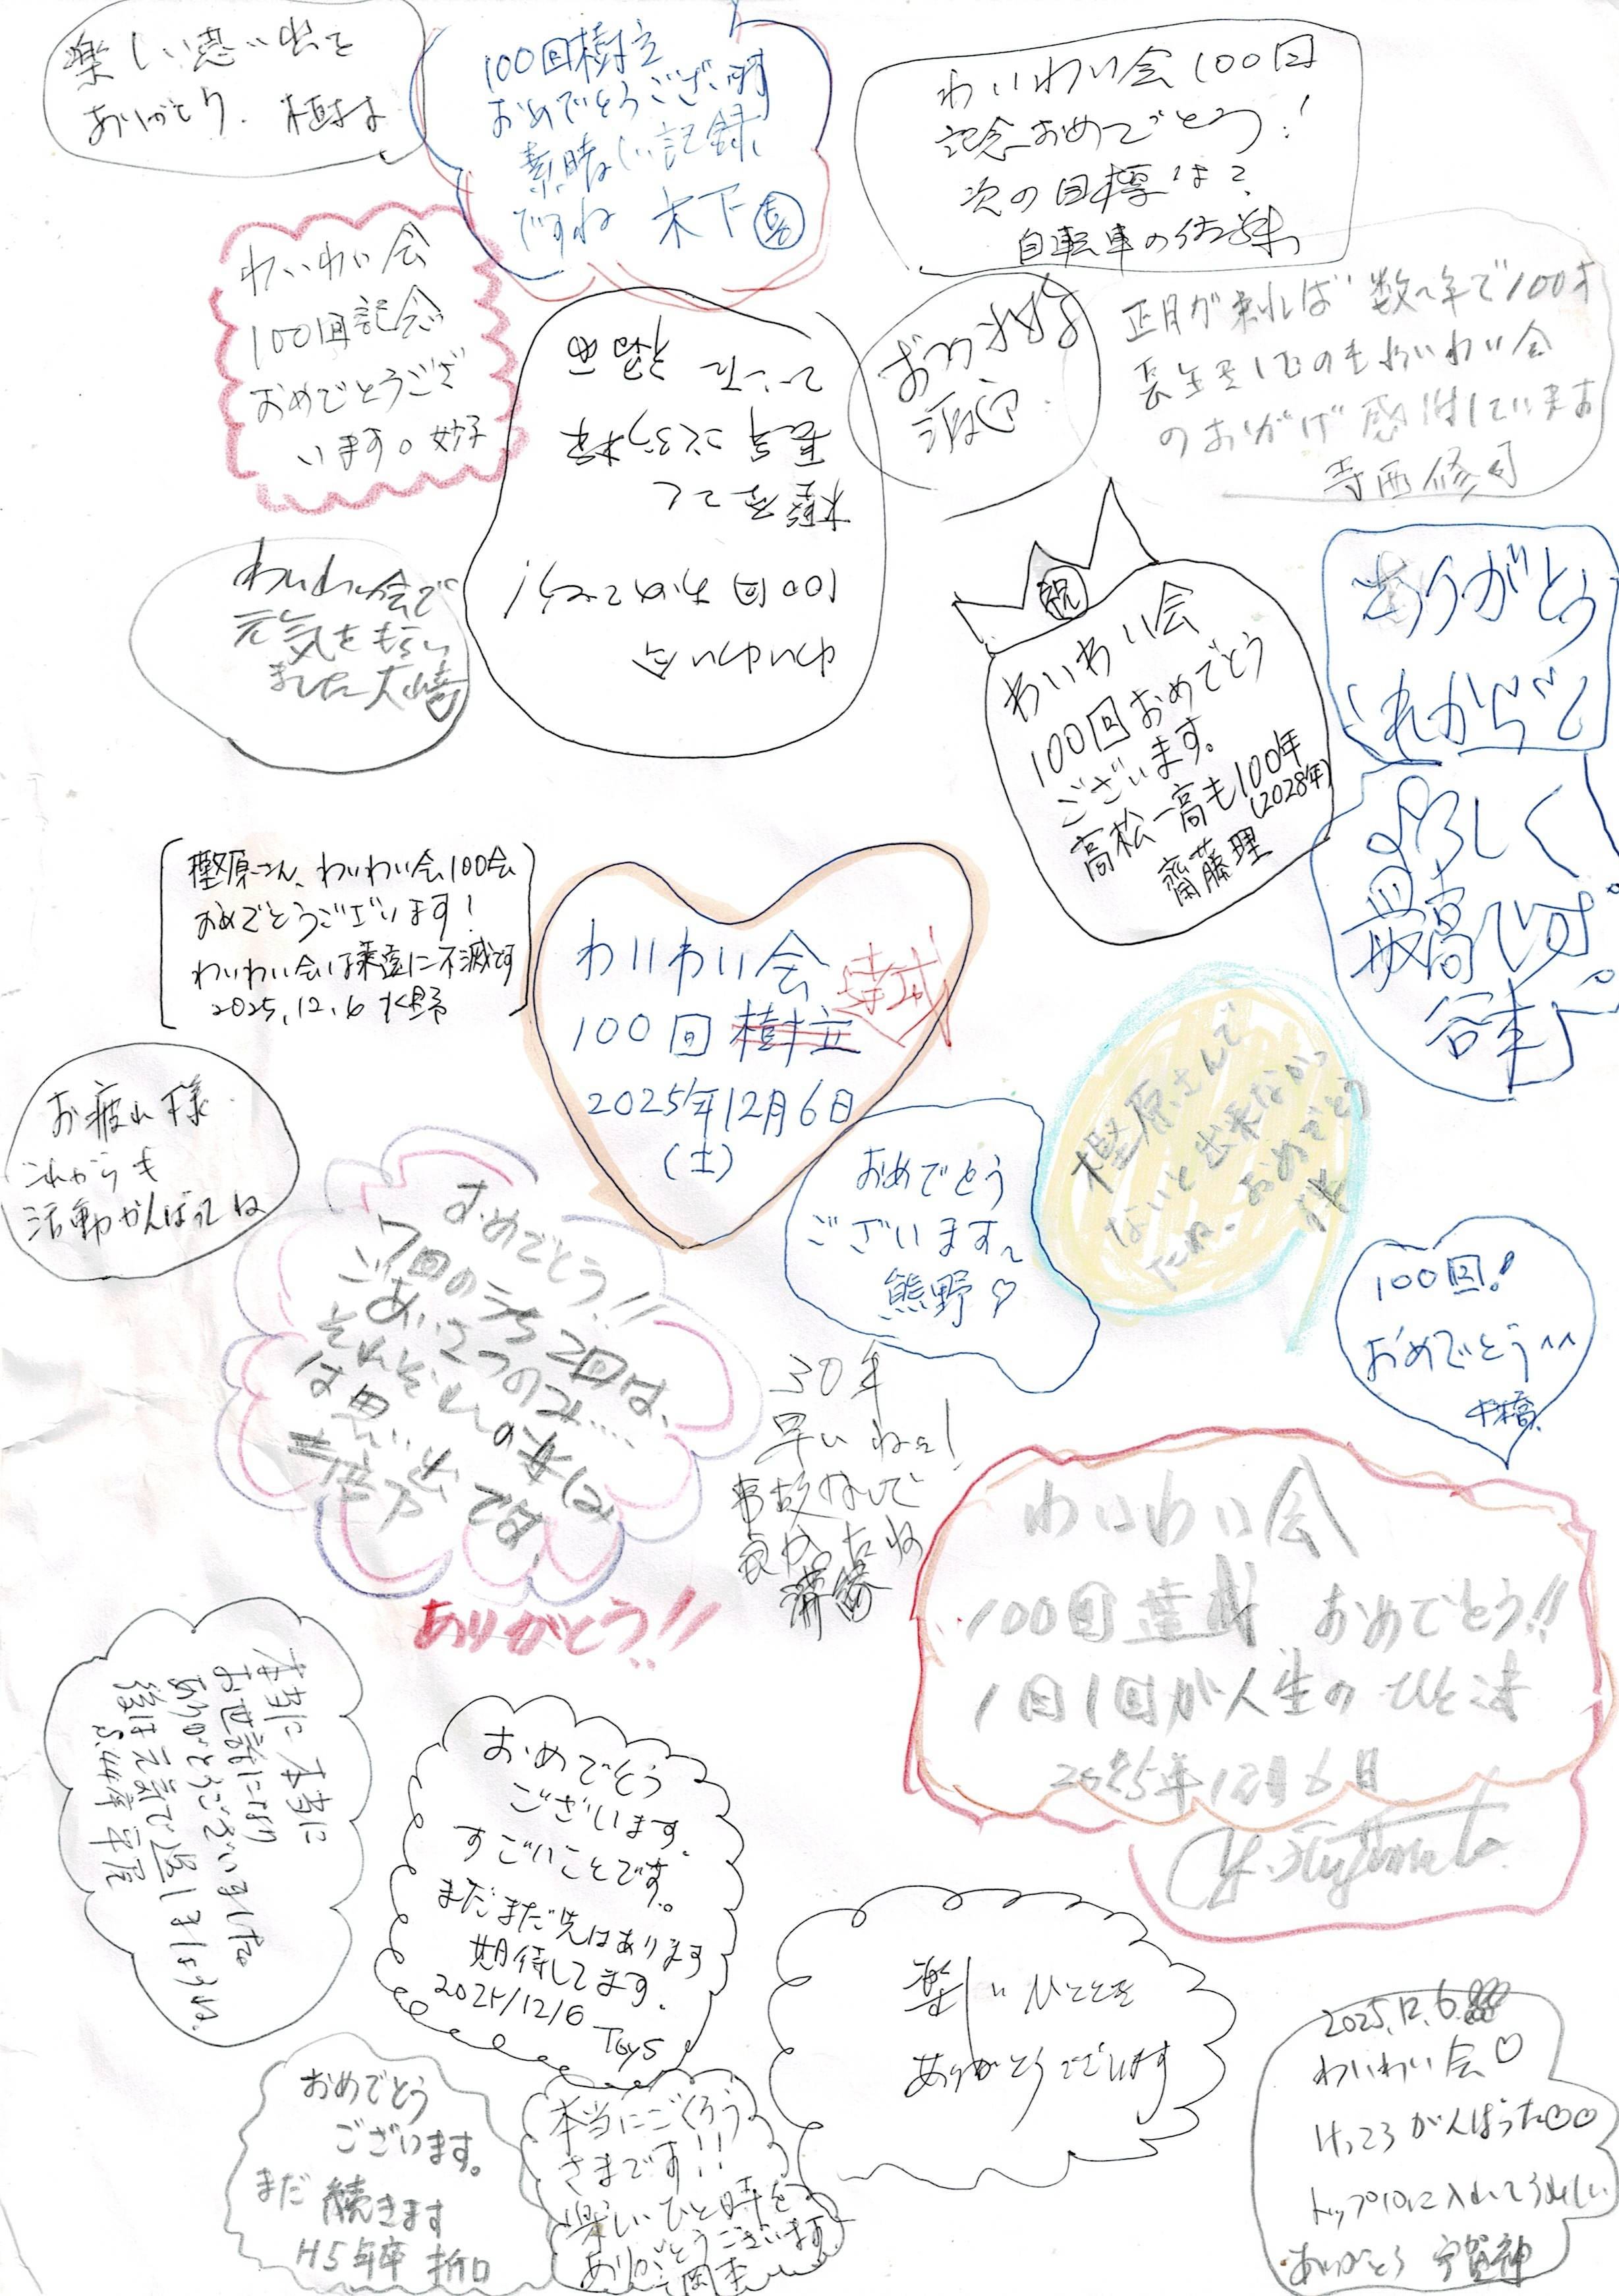 楽しい思い出を
ありがとう. 植村
100回樹立
おめでとうございます
素晴しい記録
ですね 木下 喜
わいわい会100回
記念おめでとう!
次の目標は?
自転車の
わいわい会
100回記念
おめでとうござ
います。妙子
正月が来れば数年で100才
長生き
のおかげ感謝しています
寺西修司
わいわい会
100回おめでとう!
わいわい会で
元気をもらい
ました 大崎
祝
わいわい会
100回おめでとう
ございます。
高松一高も100年
(2028年)
齋藤理
ありがとう
これからも
よろしく
最高です
谷本
樫原さん、わいわい会100会
おめでとうございます!
わいわい会は永遠に不滅です
2025.12.6 水野
わいわい会
100回樹立 達成
2025年12月6日
(土)
樫原さんで
ないと出来なかっ
たね、おめでとう
お疲れ様
これからも
活動がんばってね
おめでとう
ございます
熊野♡
おめでとう!!
7回のうち2回は、
ごあいさつのみ…
それぞれの
は思い出です。
ありがとう!!
100回!
おめでとう^^
30年
早いねぇ!
事故なしで
良かったね
溝渕
わいわい会
100回達成 おめでとう!!
1回1回が人生のひと
2025年12月6日
本当に本当に
お世話になり
ありがとうございました
後は元気で過しましょうね.
おめでとう
ございます.
すごいことです。
まだまだ先はあります
期待してます.
2025/12/6
Toys
楽しいひとときを
ありがとうございます
2025.12.6
わいわい会♡
けっこうがんばった♡♡
トップ10に入れてうれしい
ありがとう 宇賀神
おめでとう
ございます。
まだ続きます
H5年卒 折口
本当にごくろう
さまです!!
楽しいひと時を
ありがとうございます
岡本